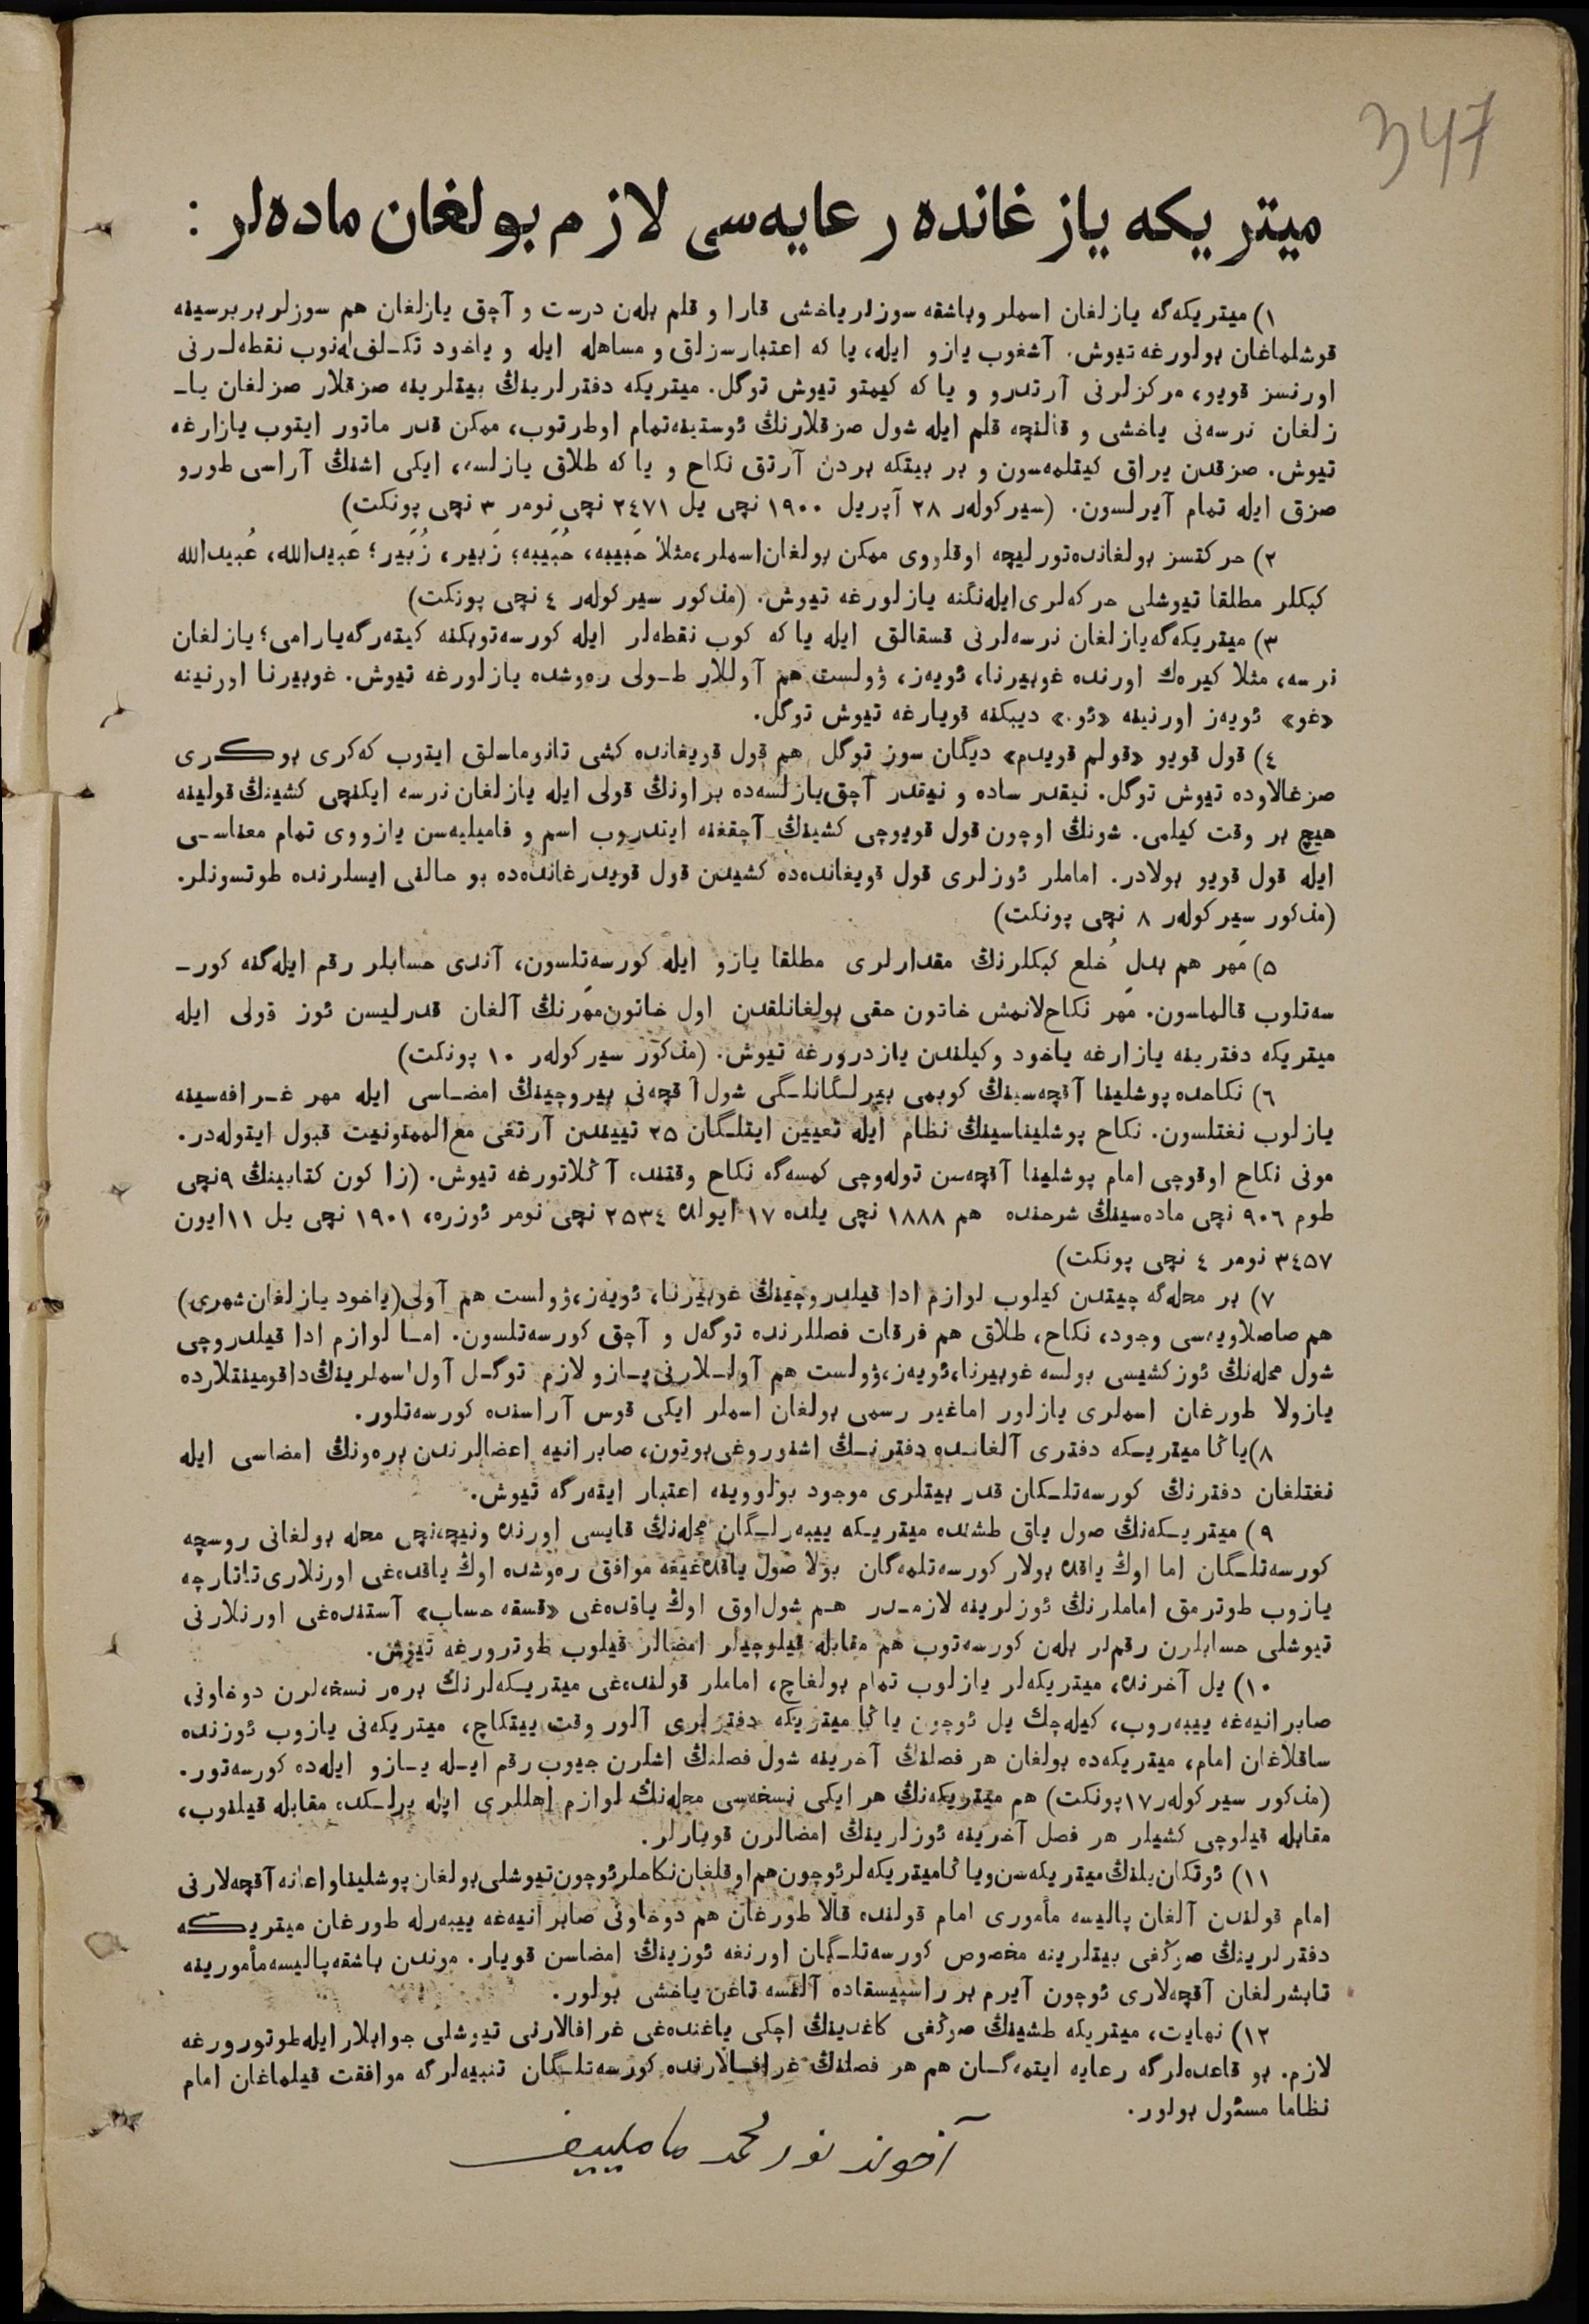 347
ميتريكه يازغانده رعايه‌سى لازم بولغان ماده‌لر :
١) ميتريكه‌گه يازلغان اسملر وباشقه سوزلر ياخشى قارا و قلم بله‌ن درست و آچق يازلغان هم سوزلر بربرسينه
قوشلماغان بولورغه تيوش. آشغوب يازو ايله، يا كه اعتبارسزلق و مساهله ايله و ياخود تكـلف‌له‌نوب نقطه‌لـرنى
اورنسز قويو، مركزلرنى آرتدرو و يا كه كيمتو تيوش توگل. ميتريكه دفترلرينڭ بيتلرينه صزقلار صزلغان يا–
زلغان نرسه‌نى ياخشى و قالنچه قلم ايله شول صزقلارنڭ ئوستينه‌تمام اوطرتوب، ممكن قدر ماتور ايتوب يازارغه
تيوش. صزقدن يراق كيتلمه‌سون و بر بيتكه بردن آرتق نكاح و يا كه طلاق يازلسه، ايكى اشنڭ آراسى طورو
صزق ايله تمام آيرلسون. (سيركوله‌ر ٢٨ آپريل ١٩٠٠ نچى يل ٢٤٧١ نچى نومر ٣ نچى پونكت)
٢) حركتسز بولغانده‌تورليچه اوقلووى ممكن بولغان‌اسملر،مثلاً حَبيبه، حُبَيبه؛ زَبير، زُبَير؛ عَبيدالله، عُبيدالله
كبكلر مطلقا تيوشلى حركه‌لرى‌ايله‌نگنه يازلورغه تيوش. (مذكور سيركوله‌ر ٤ نچى پونكت)
٣) ميتريكه‌گه‌يازلغان نرسه‌لرنى قسقالق ايله يا كه كوب نقطه‌لر ايله كورسه‌توبكنه كيته‌رگه‌يارامى؛ يازلغان
نرسه، مثلا كيره‌ك اورنده غوبيرنا، ئويه‌ز، ۋولست هم آوللار طـولى ره‌وشده يازلورغه تيوش. غوبيرنا اورنينه
«غو» ئويه‌ز اورنينه «ئو.» ديبكنه قويارغه تيوش توگل.
٤) قول قويو «قولم قويدم» ديگان سوز توگل هم قول قويغانده كشى تانوماسلق ايتوب كه‌كرى بوكـرى
صزغالاوده تيوش توگل. نيقدر ساده و نيقدر آچق‌يازلسه‌ده براونڭ قولى ايله يازلغان نرسه ايكنچى كشينڭ قولينه
هيچ بر وقت كيلمى. شونڭ اوچون قول قويوچى كشينڭ آچقغنه ايتدروب اسم و فاميليه‌سن يازووى تمام معناسـى
ايله قول قويو بولادر. اماملر ئوزلرى قول قويغانده‌ده كشيدن قول قويدرغانده‌ده بو حالنى ايسلرنده طوتسونلر.
(مذكور سيركوله‌ر ٨ نچى پونكت)
٥) مَهر هم بدلِ خُلع كبكلرنڭ مقدارلرى مطلقا يازو ايله كورسه‌تلسون، آندى حسابلر رقم ايله‌گنه كور–
سه‌تلوب قالماسون. مَهر نكاح‌لانمش خاتون حقى بولغانلقدن اول خاتون‌مَهرنڭ آلغان قدرليسن ئوز قولى ايله
ميتريكه دفترينه يازارغه ياخود وكيلندن يازدرورغه تيوش. (مذكور سيركوله‌ر ١٠ پونكت)
٦) نكاحده پوشلينا آقچه‌سينڭ كوبمى بيرلـگانلـگى شول آقچه‌نى بيروچينڭ امضـاسى ايله مهر غـرافه‌سينه
يازلوب نغتلسون. نكاح پوشليناسينڭ نظام ايله تعيين ايتلـگان ٢٥ تييندن آرتغى مع‌الممنونيت قبول ايتوله‌در.
مونى نكاح اوقوچى امام پوشلينا آقچه‌سن توله‌وچى كمسه‌گه نكاح وقتنده آڭلاتورغه تيوش. (زا كون كتابينڭ ٩نچى
طوم ٩٠٦ نچى ماده‌سينڭ شرحنده هم ١٨٨٨ نچى يلده ١٧ ايولده ٢٥٣٤ نچى نومر ئوزره، ١٩٠١ نچى يل ١١ايون
٣٤٥٧ نومر ٤ نچى پونكت)
٧) بر محله‌گه چيتدن كيلوب لوازم ادا قيلدروچينڭ غوبيرنا، ئويه‌ز،ۋولست هم آولى(ياخود يازلغان‌شهرى)
هم صاصلاويه‌سى وجود، نكاح، طلاق هم فرقات فصللرنده توگه‌ل و آچق كورسه‌تلسون. امـا لوازم ادا قيلدروچى
شول محله‌نڭ ئوزكشيسى بولسه غوبيرنا،ئويه‌ز،ۋولست هم آولـلارنى‌يـازو لازم توگـل آول‌اسملرينڭ‌داقومينتلارده
يازولا طورغان اسملرى يازلور اماغير رسمى بولغان اسملر ايكى قوس آراسنده كورسه‌تلور.
٨)ياڭا ميتريـكه دفترى آلغانـده دفترنـڭ اشنوروغى‌بوتون، صابرانيه اعضالرندن بره‌ونڭ امضاسى ايله
نغتلغان دفترنڭ كورسه‌تلـكان قدر بيتلرى موجود بولووينه اعتبار ايته‌رگه تيوش.
٩) ميتريـكه‌نڭ صول ياق طشنده ميتريـكه ييبه‌رلـگان محله‌نڭ قايسى اورنده ونيچه‌نچى محله بولغانى روسچه
كورسه‌تلـگان اما اوڭ ياقده بولار كورسه‌تلمه‌گان بولا صول ياقده‌غيغه موافق ره‌وشده اوڭ ياقده‌غى اورنلارى‌تاتارچه
يازوب طوترمق اماملرنڭ ئوزلرينه لازمـدر هـم شول‌اوق اوڭ ياقده‌غى «قسقه حساب» آستنده‌غى اورنلارنى
تيوشلى حسابلرن رقملر بله‌ن كورسه‌توب هم مقابله قيلوچيلر امضالر قيلوب طوترورغه تيوش.
١٠) يل آخرنده، ميتريكه‌لر يازلوب تمام بولغاچ، اماملر قولنده‌غى ميتريـكه‌لرنڭ بره‌ر نسخه‌لرن دوخاونى
صابرانيه‌غه ييبه‌روب، كيله‌چك يل ئوچون ياڭا ميتريكه دفترلرى آلور وقت ييتكاچ، ميتريكه‌نى يازوب ئوزنده
ساقلاغان امام، ميتريكه‌ده بولغان هر فصلنڭ آخرينه شول فصلنڭ اشلرن جيوب رقم ايـله يـازو ايله‌ده كورسه‌تور.
(مذكور سيركوله‌ر١٧پونكت) هم ميتريكه‌نڭ هر ايكى نسخه‌سى محله‌نڭ لوازم اهللرى ايله برلـكده مقابله قيلنوب،
مقابله قيلوچى كشيلر هر فصل آخرينه ئوزلرينڭ امضالرن قويارلر.
١١) ئوتكان‌يلنڭ‌ميتريكه‌سن‌وياڭاميتريكه‌لرئوچون‌هم‌اوقلغان‌نكاحلرئوچون‌تيوشلى‌بولغان‌پوشليناواعانه آقچه‌لارنى
امام قولندن آلغان پاليسه مأمورى امام قولنده قالا طورغان هم دوخاونى صابرانيه‌غه ييبه‌رله طورغان ميتريـكه
دفترلرينڭ صوڭغى بيتلرينه مخصوص كورسه‌تلـگان اورنغه ئوزينڭ امضاسن قويار. موندن باشقه‌پاليسه‌مأمورينه
تابشرلغان آقچه‌لارى ئوچون آيرم بر راسپيسقاده آلنسه تاغن ياخشى بولور.
١٢) نهايت، ميتريكه طشينڭ صوڭغى كاغدينڭ اچكى ياغنده‌غى غرافالارنى تيوشلى جوابلارايله‌طوتورورغه
لازم. بو قاعده‌لرگه رعايه ايتمه‌گـان هم هر فصلنڭ غرافـالارنده كورسه‌تلـگان تنبيه‌لرگه موافقت قيلماغان امام
نظاما مسئول بولور.
آخوند نورمحمد مامليييف